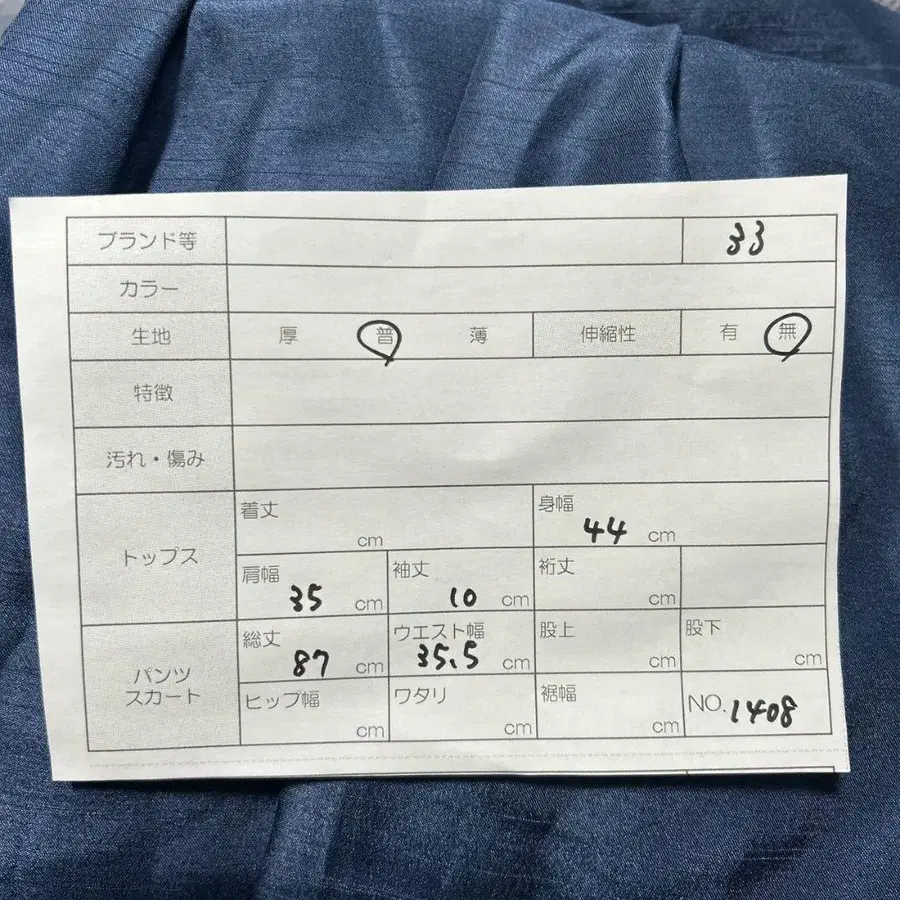 ブランド等 33
カラー
生地 厚 普 薄 伸縮性 有 無
特徴
汚れ・傷み
トップス
着丈 cm 身幅 44 cm
肩幅 35 cm 袖丈 10 cm 裄丈 cm
パンツ
スカート
総丈 87 cm ウエスト幅 35.5 cm 股上 cm 股下 cm
ヒップ幅 cm ワタリ cm 裾幅 cm NO.1408